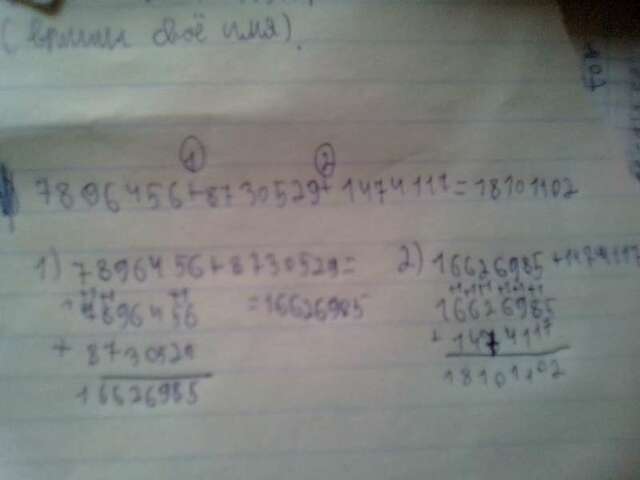 (впиши своё имя).
① ②
7896456+8730529+1474117=18101102
1) 7896456+8730529=
=16626985
7896456
+
8730529
16626985
2) 16626985+1474117
16626985
+
1474117
18101102